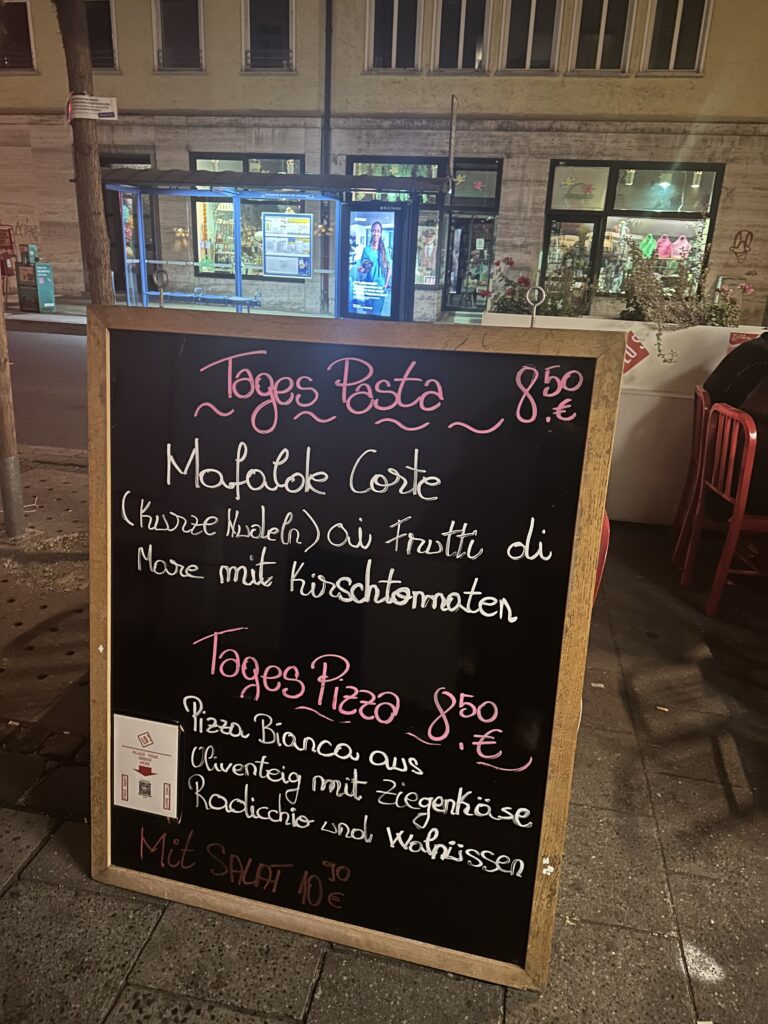 Tages Pasta 8.50 €
Mafalde Corte
(Kurze Nudeln) ai Frutti di
Mare mit Kirschtomaten
Tages Pizza 8.50 €
Pizza Bianca aus
Oliventeig mit Ziegenkäse
Radicchio und Walnüssen
Mit SALAT 10 90 €
PLACE YOUR
ORDER
HERE